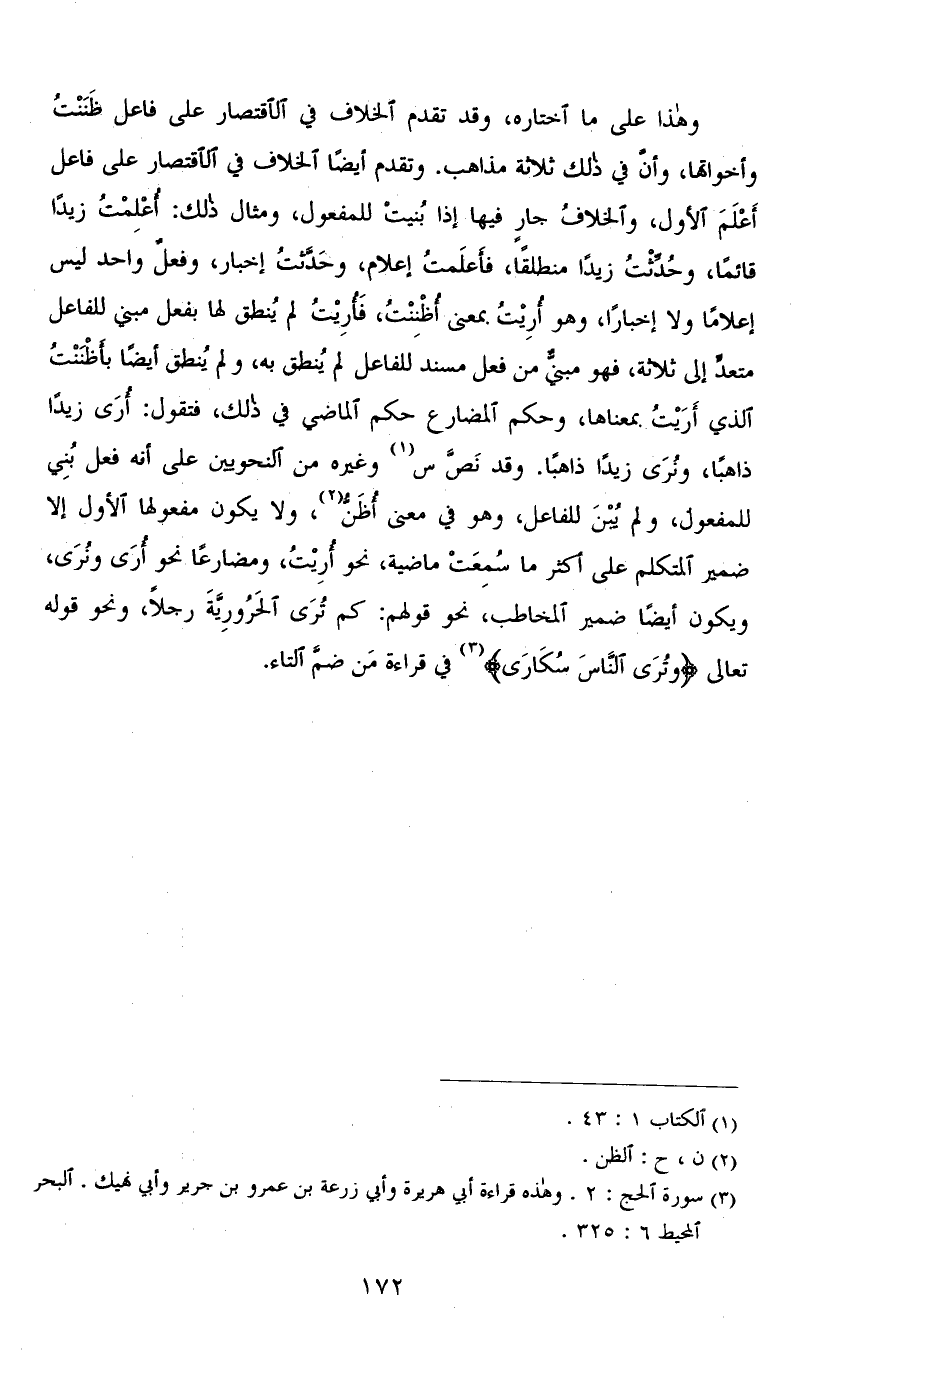 وهٰذا على ما ٱختاره، وقد تقدم ٱلخلاف في ٱلٱقتصار على فاعل ظَنَنْتُ
وأخواتها، وأنَّ في ذٰلك ثلاثة مذاهب. وتقدم أيضًا ٱلخلاف في ٱلٱقتصار على فاعل
أَعْلَمَ ٱلأول، وٱلخلافُ جارٍ فيها إذا بُنيتْ للمفعول، ومثال ذٰلك: أُعْلِمْتُ زيدًا
قائمًا، وحُدِّثْتُ زيدًا منطلقًا، فأَعلَمتُ إعلام، وحَدَّثتُ إخبار، وفعلٌ واحد ليس
إعلامًا ولا إخبارًا، وهو أُرِيْتُ بمعنى أُظْنِنْتُ، فَأُرِيْتُ لم يُنطق لها بفعل مبني للفاعل
متعدٍّ إلى ثلاثة، فهو مبنيٌّ من فعل مسند للفاعل لم يُنطق به، ولم يُنطق أيضًا بأَظْنَنْتُ
ٱلذي أَرَيْتُ بمعناها، وحكم ٱلمضارع حكم ٱلماضي في ذٰلك، فتقول: أُرَى زيدًا
ذاهبًا، ونُرَى زيدًا ذاهبًا. وقد نَصَّ س(١) وغيره من ٱلنحويين على أنه فعل بُنِي
للمفعول، ولم يُبْنَ للفاعل، وهو في معنى أُظَنُّ(٢)، ولا يكون مفعولها ٱلأول إلا
ضمير ٱلمتكلم على أكثر ما سُمِعَتْ ماضية، نحو أُرِيْتُ، ومضارعًا نحو أُرَى ونُرَى،
ويكون أيضًا ضمير ٱلمخاطب، نحو قولهم: كم تُرَى ٱلحَرُورِيَّةَ رجلاً، ونحو قوله
تعالى ﴿وتُرَى ٱلنَّاسَ سُكَارَى﴾(٣) في قراءة مَن ضمَّ ٱلتاء.
(١) ٱلكتاب ١ : ٤٣ .
(٢) ن ، ح : ٱلظن .
(٣) سورة ٱلحج : ٢ . وهٰذه قراءة أبي هريرة وأبي زرعة بن عمرو بن جرير وأبي نهيك . ٱلبحر
ٱلمحيط ٦ : ٣٢٥ .
١٧٢